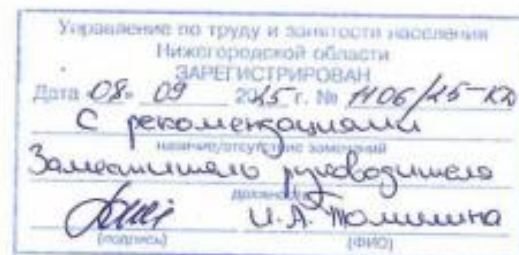 Управление по труду и занятости населения
Нижегородской области
ЗАРЕГИСТРИРОВАН
Дата 08. 09 2025 г. № 1106/25-КД
С рекомендациями
наличие/отсутствие замечаний
Заместитель руководителя
должность
(подпись) И.А. Томилина
(ФИО)